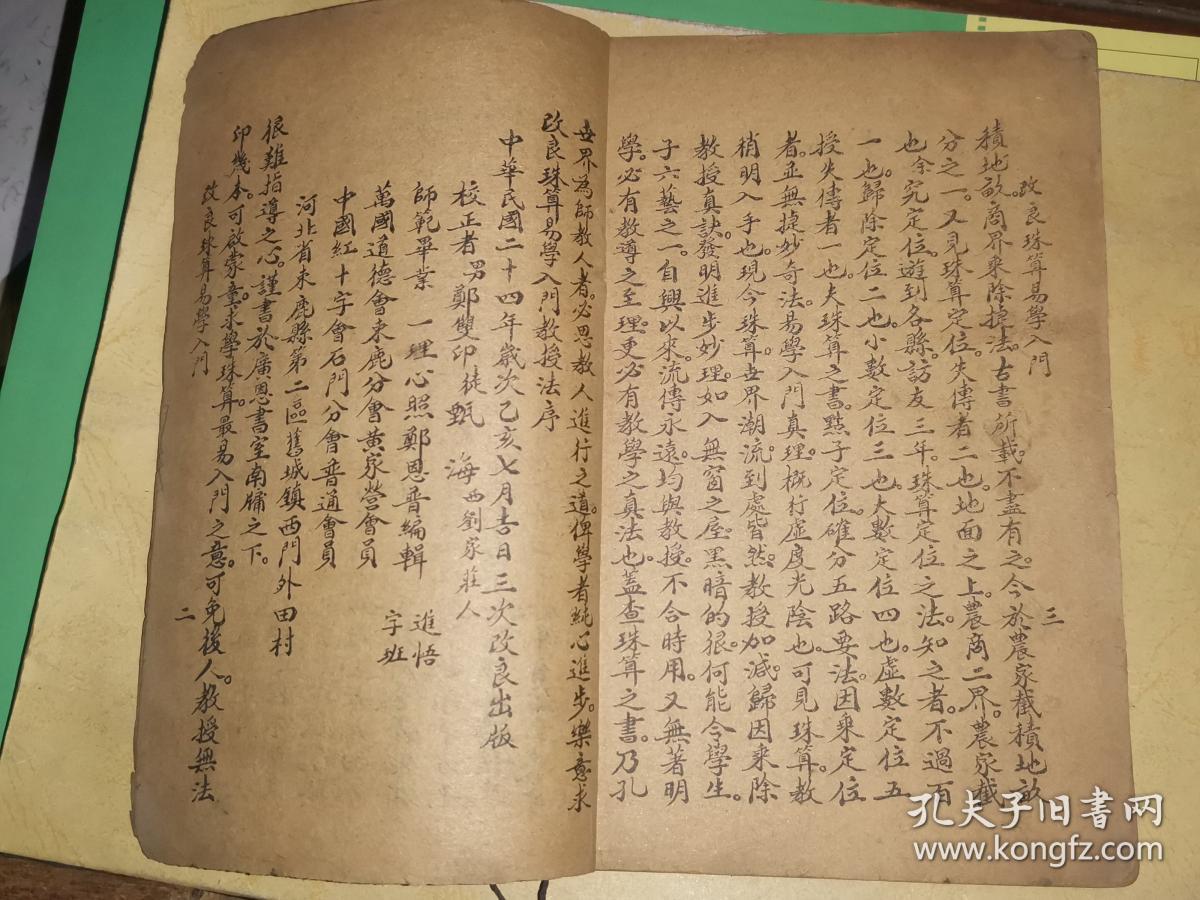 改良珠算易學入門 二
印幾本。可啟蒙童。求學珠算。最易入門之意。可免後人。教授無法
很難指導之心。謹書於廣恩書室南牖之下。
河北省束鹿縣第二區舊城鎮西門外田村
中國紅十字會石門分會普通會員
萬國道德會束鹿分會黃家營會員 字班
師範畢業 一理心照鄭恩普編輯 進悟
校正者男鄭雙印徒甄海西劉家莊人
中華民國二十四年歲次乙亥七月吉日三次改良出版
改良珠算易學入門教授法序
世界為師教人者。必思教人進行之道。俾學者純心進步。樂意求
學。必有教導之至理。更必有教學之真法也。蓋查珠算之書。乃孔
子六藝之一。自興以來。流傳永遠。均與教授。不合時用。又無著明
教授真訣。發明進步妙理。如入無窗之屋。黑暗的很。何能令學生。
稍明入手也。現今珠算。世界潮流。到處皆然。教授加減。歸因乘除
者。並無捷妙奇法。易學入門真理。概行虛度光陰也。可見珠算。教
授失傳者一也。夫珠算之書。點子定位。確分五路要法。因乘定位
一也。歸除定位二也。小數定位三也。大數定位四也。虛數定位五
也。余究定位。遊到各縣。訪友三年。珠算定位之法。知之者。不過百
分之一。又見珠算定位。失傳者二也。地面之上。農商二界。農家截
積地畝。商界乘除掉法。古書所載。不盡有之。今於農家截積地畝
改良珠算易學入門 三
孔夫子旧书网
www.kongfz.com